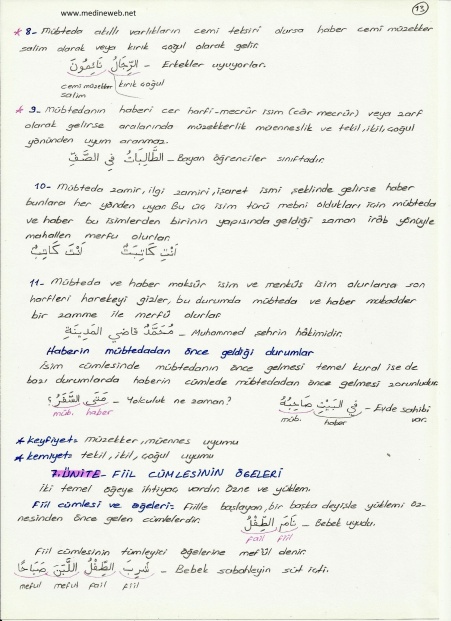 www.medineweb.net
13
* 8- Mübteda akıllı varlıkların cemi teksiri olursa haber cemi müzekker
salim olarak veya kırık çoğul olarak gelir.
الرِّجَالُ نَائِمُونَ - Erkekler uyuyorlar.
cemi müzekker kırık çoğul
salim
* 9- Mübtedanın haberi cer harfi-mecrûr isim (câr mecrûr) veya zarf
olarak gelirse aralarında müzekkerlik müenneslik ve tekil, ikil, çoğul
yönünden uyum aranmaz.
الطَّالِبَاتُ فِي الصَّفِّ - Bayan öğrenciler sınıftadır.
10- Mübteda zamir, ilgi zamiri, işaret ismi şeklinde gelirse haber
bunlara her yönden uyar. Bu üç isim türü mebni oldukları için mübteda
ve haber bu isimlerden birinin yapısında geldiği zaman irâb yönüyle
mahallen merfu olurlar.
أَنْتَ كَاتِبٌ أَنْتِ كَاتِبَةٌ
11- Mübteda ve haber maksûr isim ve menkûs isim olurlarsa son
harfleri harekeyi gizler, bu durumda mübteda ve haber mukadder
bir zamme ile merfû olurlar
مُحَمَّدٌ قَاضِي الْمَدِينَةِ - Muhammed şehrin hâkimidir.
Haberin mübtedadan önce geldiği durumlar
İsim cümlesinde mübtedanın önce gelmesi temel kural ise de
bazı durumlarda haberin cümlede mübtedadan önce gelmesi zorunludur.
مَتَى السَّفَرُ؟ - Yolculuk ne zaman? فِي الْبَيْتِ صَاحِبُهُ - Evde sahibi
var.
müb. haber müb. haber
* keyfiyet= müzekker, müennes uyumu
* kemiyet= tekil, ikil, çoğul uyumu
7. ÜNİTE - FİİL CÜMLESİNİN ÖGELERİ
İki temel öğeye ihtiyaç vardır. Özne ve yüklem.
Fiil cümlesi ve öğeleri= Fiille başlayan, bir başka deyişle yüklemi öz-
nesinden önce gelen cümlelerdir. نَامَ الطِّفْلُ - Bebek uyudu.
fail fiil
Fiil cümlesinin tümleyici öğelerine mef'ûl denir.
شَرِبَ الطِّفْلُ اللَّبَنَ صَبَاحًا - Bebek sabahleyin süt içti.
meful meful fail fiil